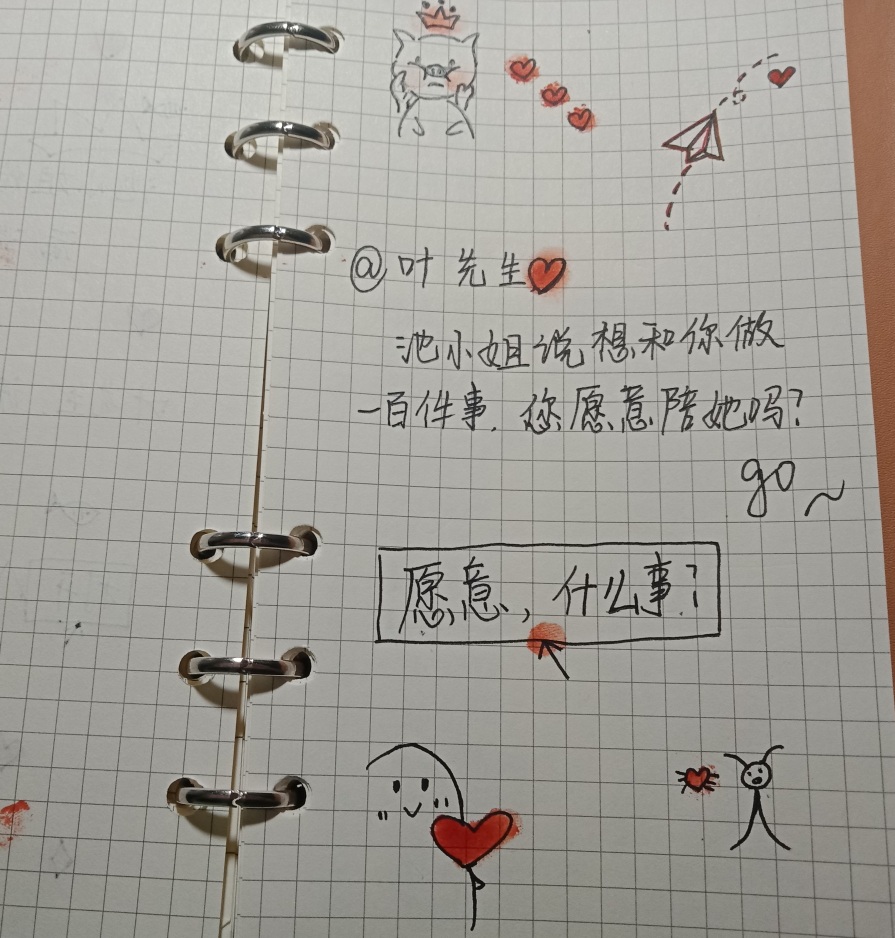 @叶先生
池小姐说想和你做
一百件事.您愿意陪她吗?
go~
愿意,什么事?